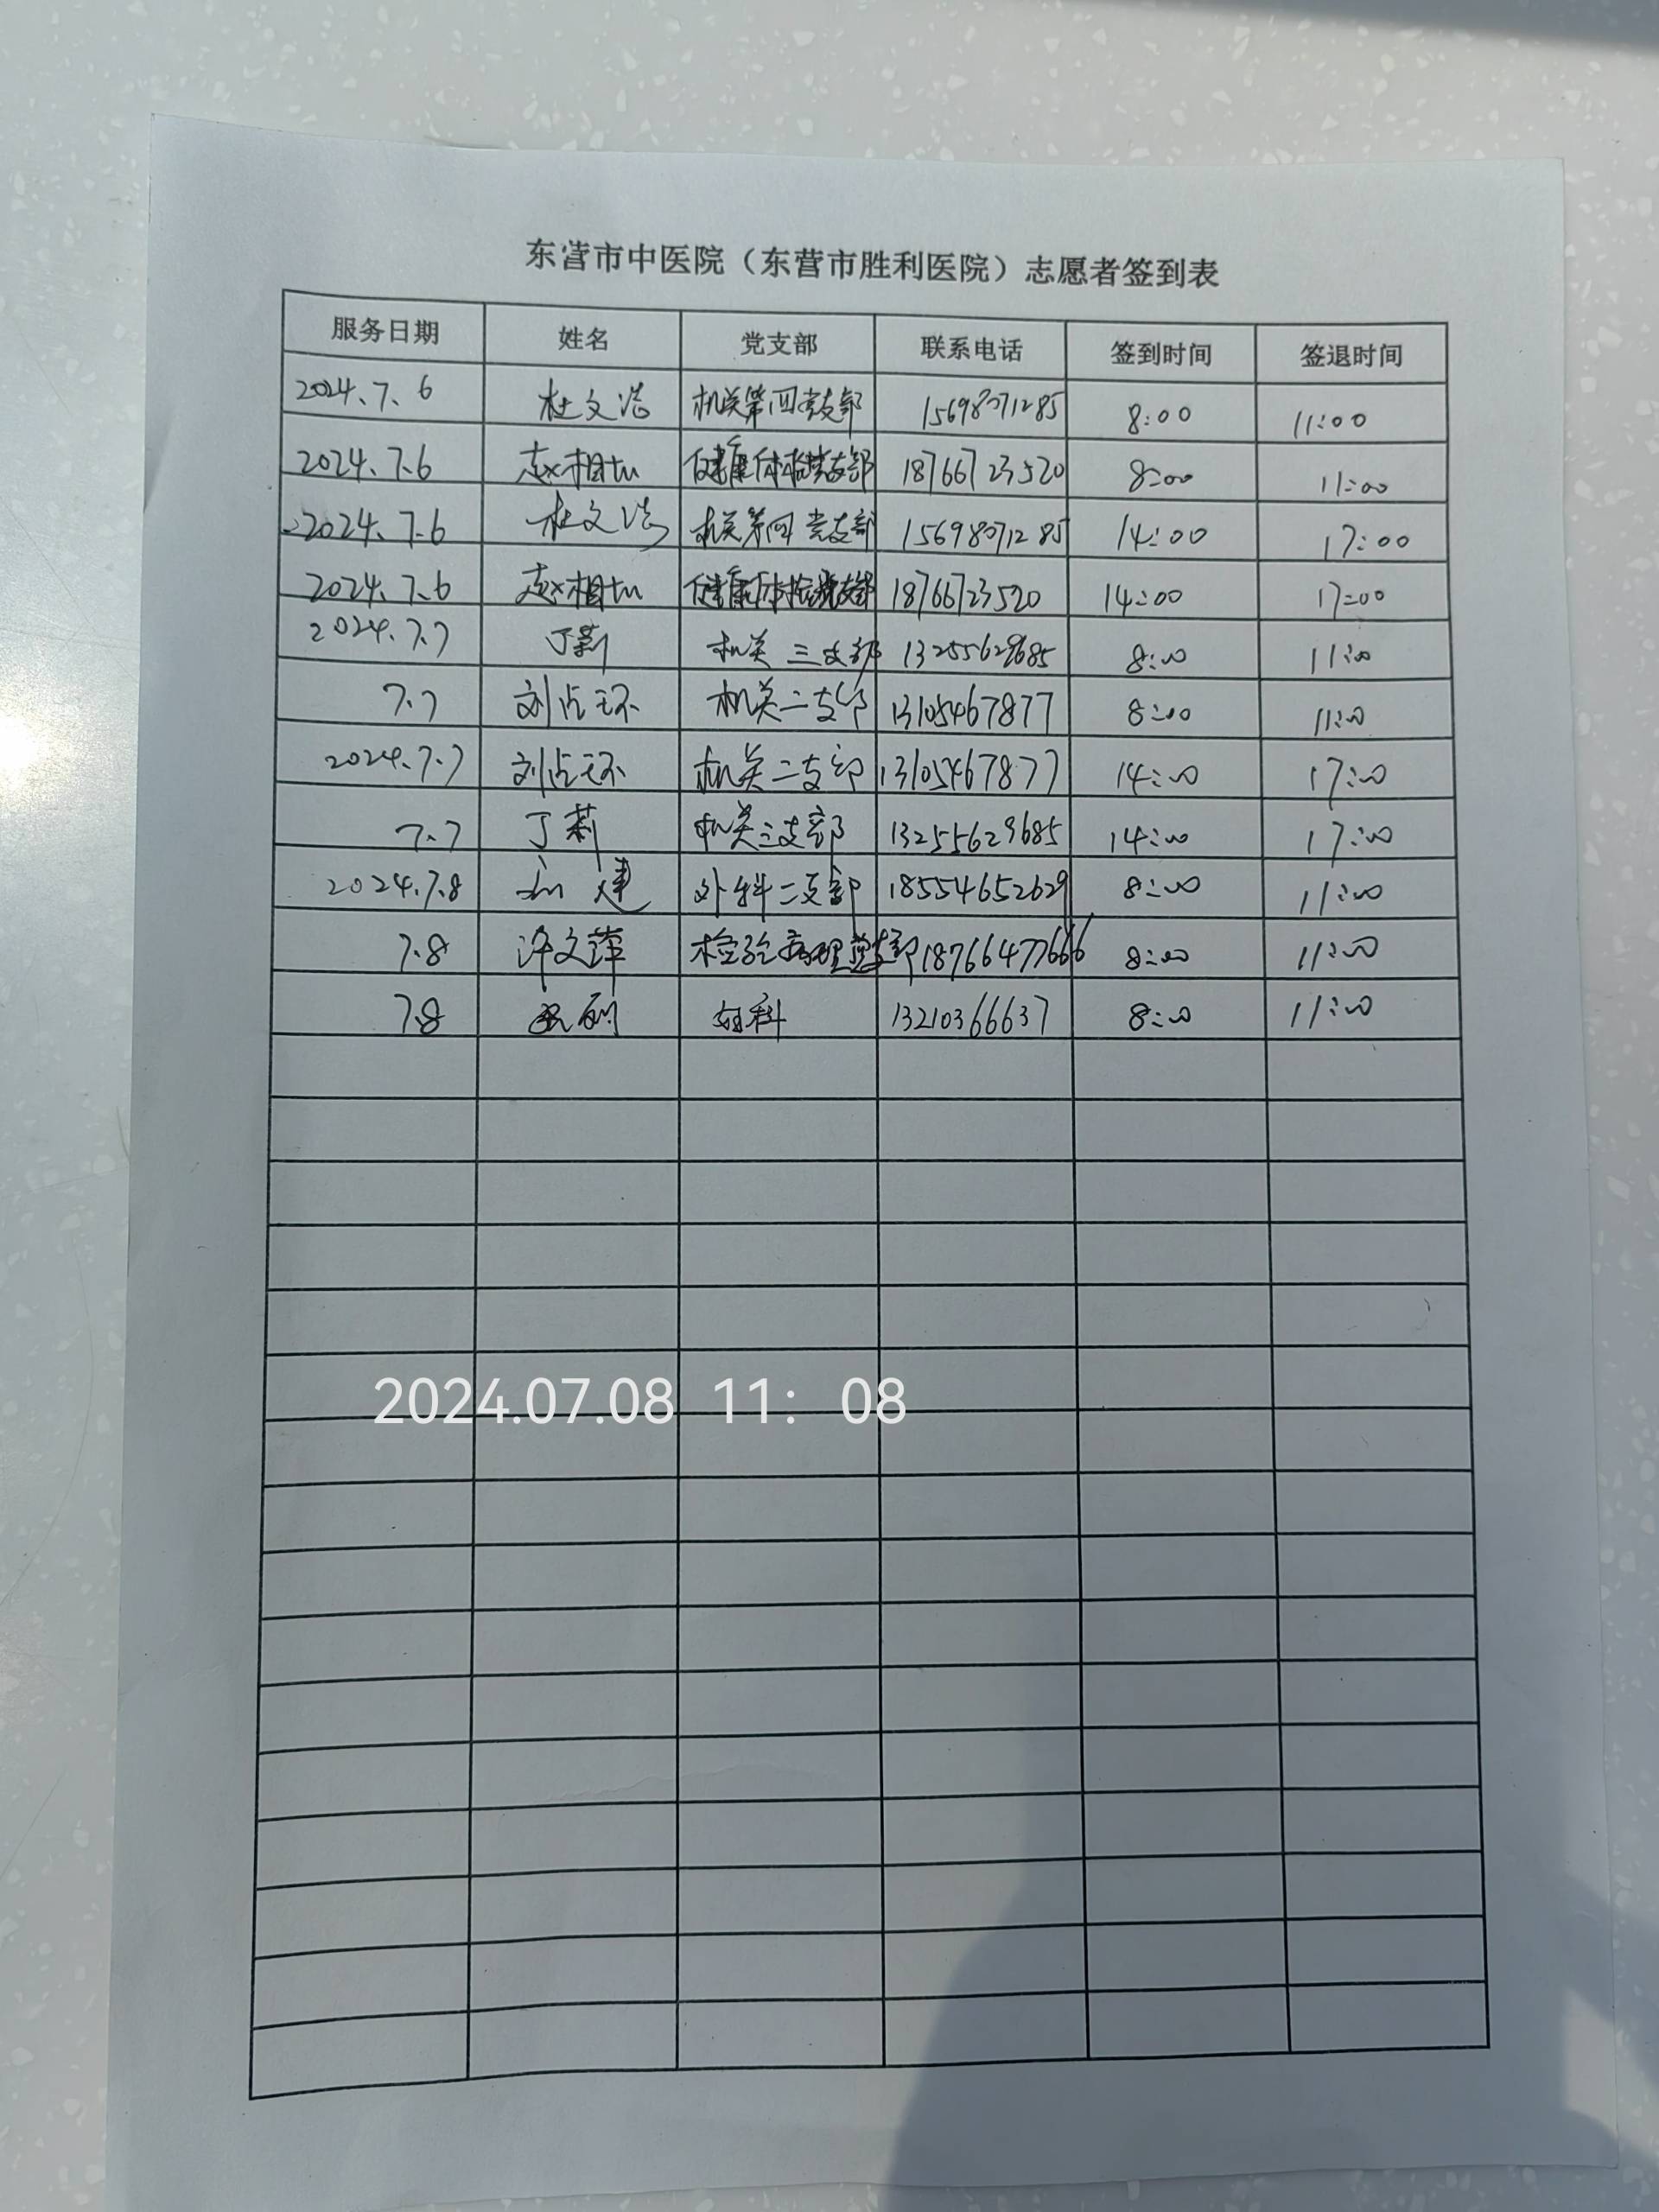 东营市中医院（东营市胜利医院）志愿者签到表
服务日期 姓名 党支部 联系电话 签到时间 签退时间
2024.7.6 杜文浩 机关第四党支部 15698071285 8:00 11:00
2024.7.6 赵相 健康体检党支部 18766723520 8:00 11:00
2024.7.6 杜文浩 机关第四党支部 15698071285 14:00 17:00
2024.7.6 赵相 健康体检党支部 18766723520 14:00 17:00
2024.7.7 丁莉 机关三支部 13255629685 8:00 11:00
7.7 刘占环 机关二支部 13105467877 8:00 11:00
2024.7.7 刘占环 机关二支部 13105467877 14:00 17:00
7.7 丁莉 机关三支部 13255629685 14:00 17:00
2024.7.8 建 外科二支部 18554652629 8:00 11:00
7.8 许文萍 检验病理党支部 18766477666 8:00 11:00
7.8 科 13210366637 8:00 11:00
2024.07.08 11：08